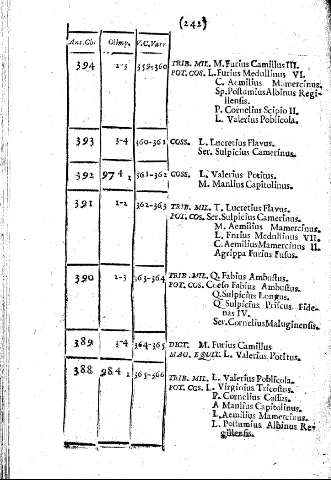 (242)
Ant. Chr. Olimp. V.C. Varr.
394 2-3 359-360 TRIB. MIL. M. Furius Camillus III.
POT. COS. L. Furius Medullinus VI.
C. Aemilius Mamercinus.
Sp. Postumius Albinus Regi-
llensis.
P. Cornelius Scipio II.
L. Valerius Poblicola.
393 3-4 360-361 COSS. L. Lucretius Flavus.
Ser. Sulpicius Camerinus.
392 97 4 1 361-362 COSS. L. Valerius Potitus.
M. Manlius Capitolinus.
391 1-2 362-363 TRIB. MIL. T. Lucretius Flavus.
POT. COS. Ser. Sulpicius Camerinus.
M. Aemilius Mamercinus.
L. Furius Medullinus VII.
C. Aemilius Mamercinus II.
Agrippa Furius Fusus.
390 2-3 363-364 TRIB. MIL. Q. Fabius Ambustus.
POT. COS. Cæso Fabius Ambustus.
Q. Sulpicius Longus.
Q. Sulpicius Priscus Fide-
nas IV.
Ser. Cornelius Maluginensis.
389 3-4 364-365 DICT. M. Furius Camillus
MAG. EQUIT. L. Valerius Potitus.
388 98 4 1 365-366 TRIB. MIL. L. Valerius Poblicola.
POT. COS. L. Virginius Tricostus.
P. Cornelius Cossus.
A Manlius Capitolinus.
L. Aemilius Mamercinus.
L. Postumius Albinus Re-
gillensis.